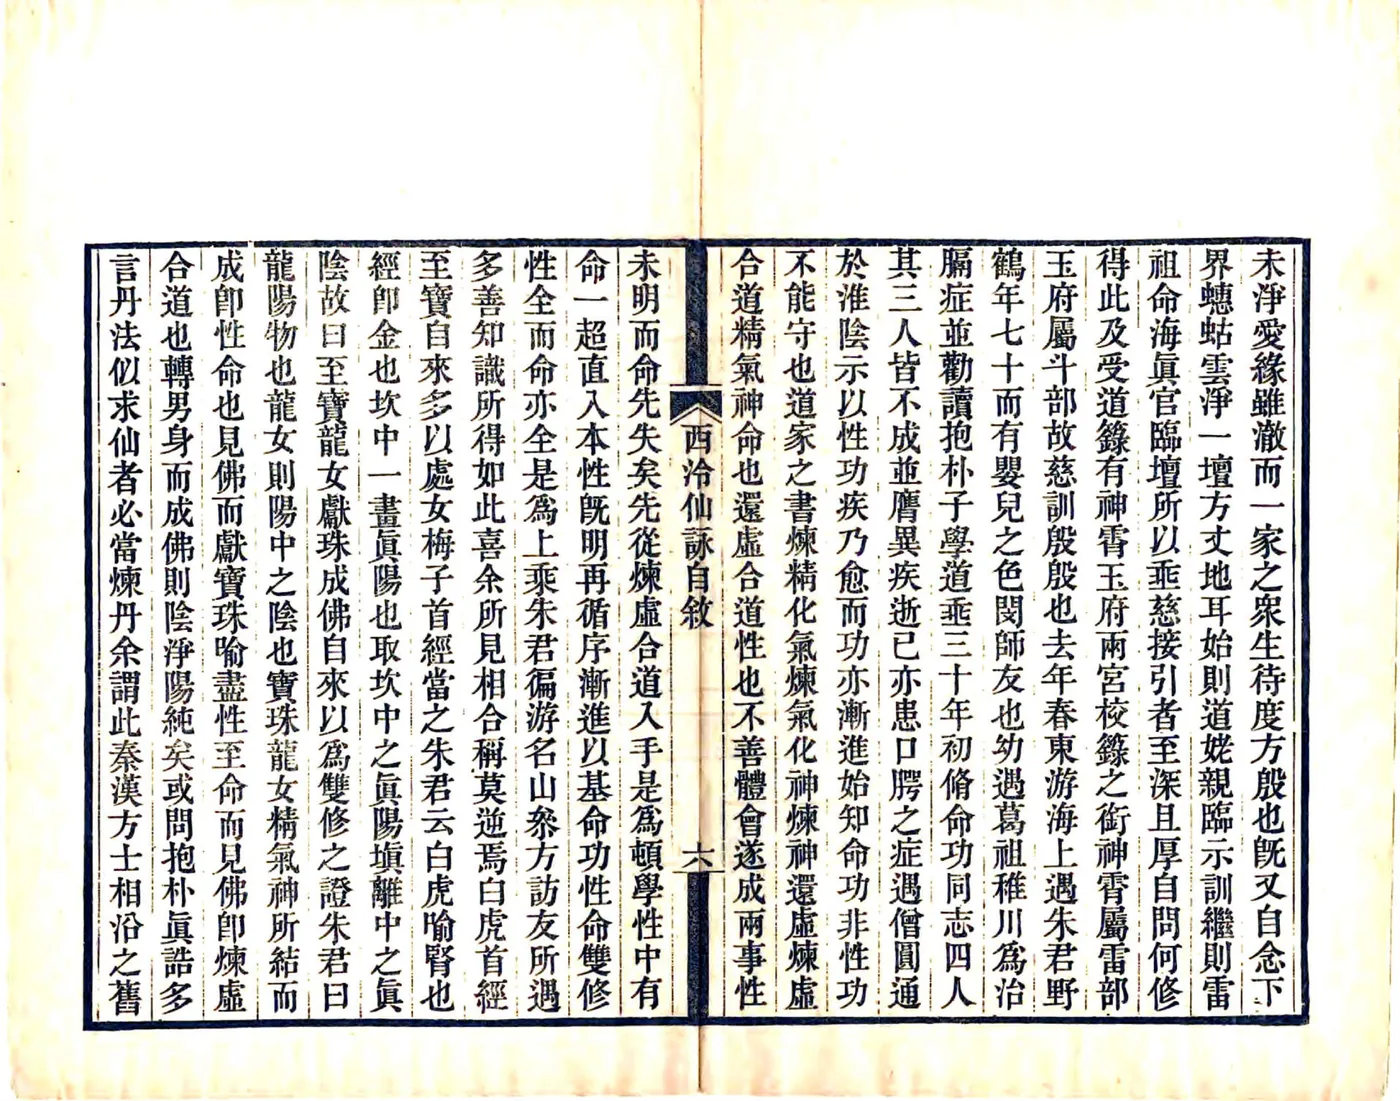 未淨愛緣雖澈而一家之衆生待度方殷也旣又自念下
界蟪蛄雲淨一壇方丈地耳始則道姥親臨示訓繼則雷
祖命海眞官臨壇所以乖慈接引者至深且厚自問何修
得此及受道籙有神霄玉府兩宮校籙之銜神霄屬雷部
玉府屬斗部故慈訓殷殷也去年春東游海上遇朱君野
鶴年七十而有嬰兒之色閔師友也幼遇葛祖稚川爲治
膈症並勸讀抱朴子學道乖三十年初脩命功同志四人
其三人皆不成並膺異疾逝己亦患口腭之症遇僧圓通
於淮陰示以性功疾乃愈而功亦漸進始知命功非性功
不能守也道家之書煉精化氣煉氣化神煉神還虛煉虛
合道精氣神命也還虛合道性也不善體會遂成兩事性
西泠仙詠自敘
六
未明而命先失矣先從煉虛合道入手是爲頓學性中有
命一超直入本性旣明再循序漸進以基命功性命雙修
性全而命亦全是爲上乘朱君徧游名山叅方訪友所遇
多善知識所得如此喜余所見相合稱莫逆焉白虎首經
至寶自來多以處女梅子首經當之朱君云白虎喻腎也
經卽金也坎中一畫眞陽也取坎中之眞陽塡離中之眞
陰故曰至寶龍女獻珠成佛自來以爲雙修之證朱君曰
龍陽物也龍女則陽中之陰也寶珠龍女精氣神所結而
成卽性命也見佛而獻寶珠喻盡性至命而見佛卽煉虛
合道也轉男身而成佛則陰淨陽純矣或問抱朴眞誥多
言丹法似求仙者必當煉丹余謂此秦漢方士相沿之舊